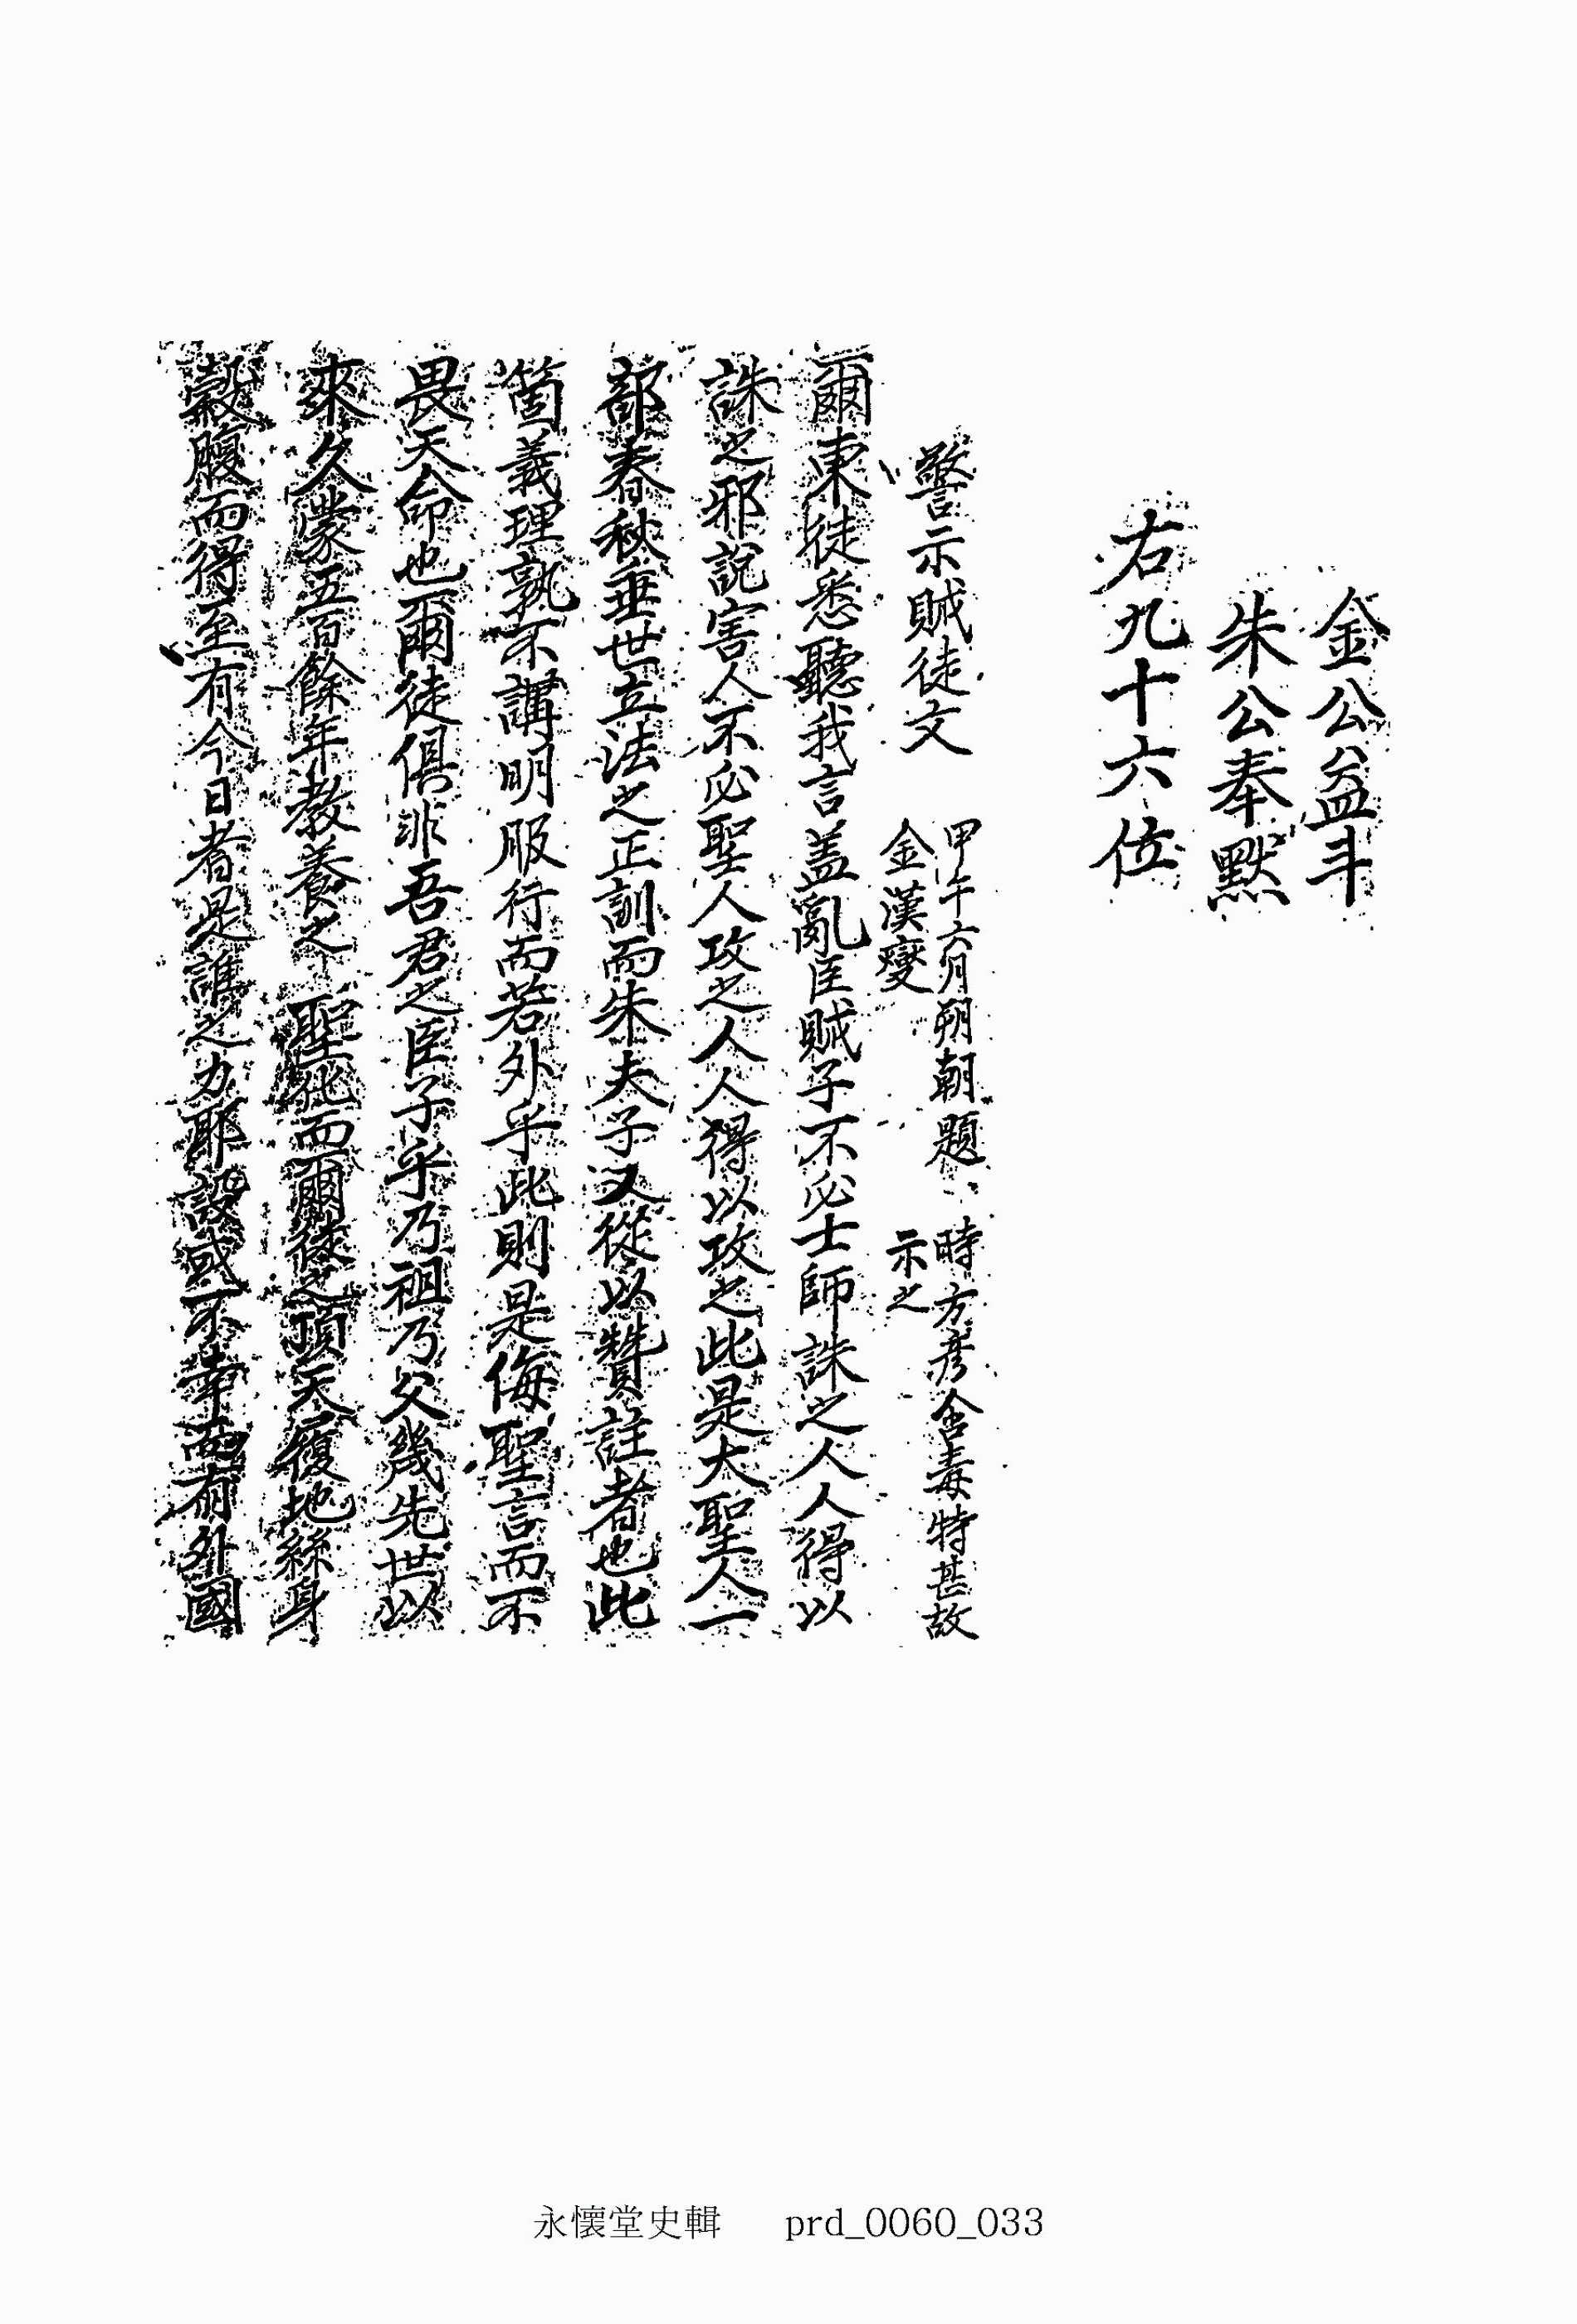 金公益斗
朱公奉黙
右九十六位
警示賊徒文
甲午六月朔朝題
金漢燮
時方彦含毒特甚故
示之
爾東徒悉聽我言盖亂臣賊子不必士師誅之人人得以
誅之邪說害人不必聖人攻之人人得以攻之此是大聖人一
部春秋垂世立法之正訓而朱夫子又從以贊註者也此
箇義理孰不講明服行而若外乎此則是侮聖言而不
畏天命也爾徒俱非吾君之臣子乎乃祖乃父幾先世以
來久蒙五百餘年敎養之 聖化而爾徒之頂天履地絲身
穀腹而得至有今日者是誰之力耶設或不幸而有外國
永懷堂史輯 prd_0060_033